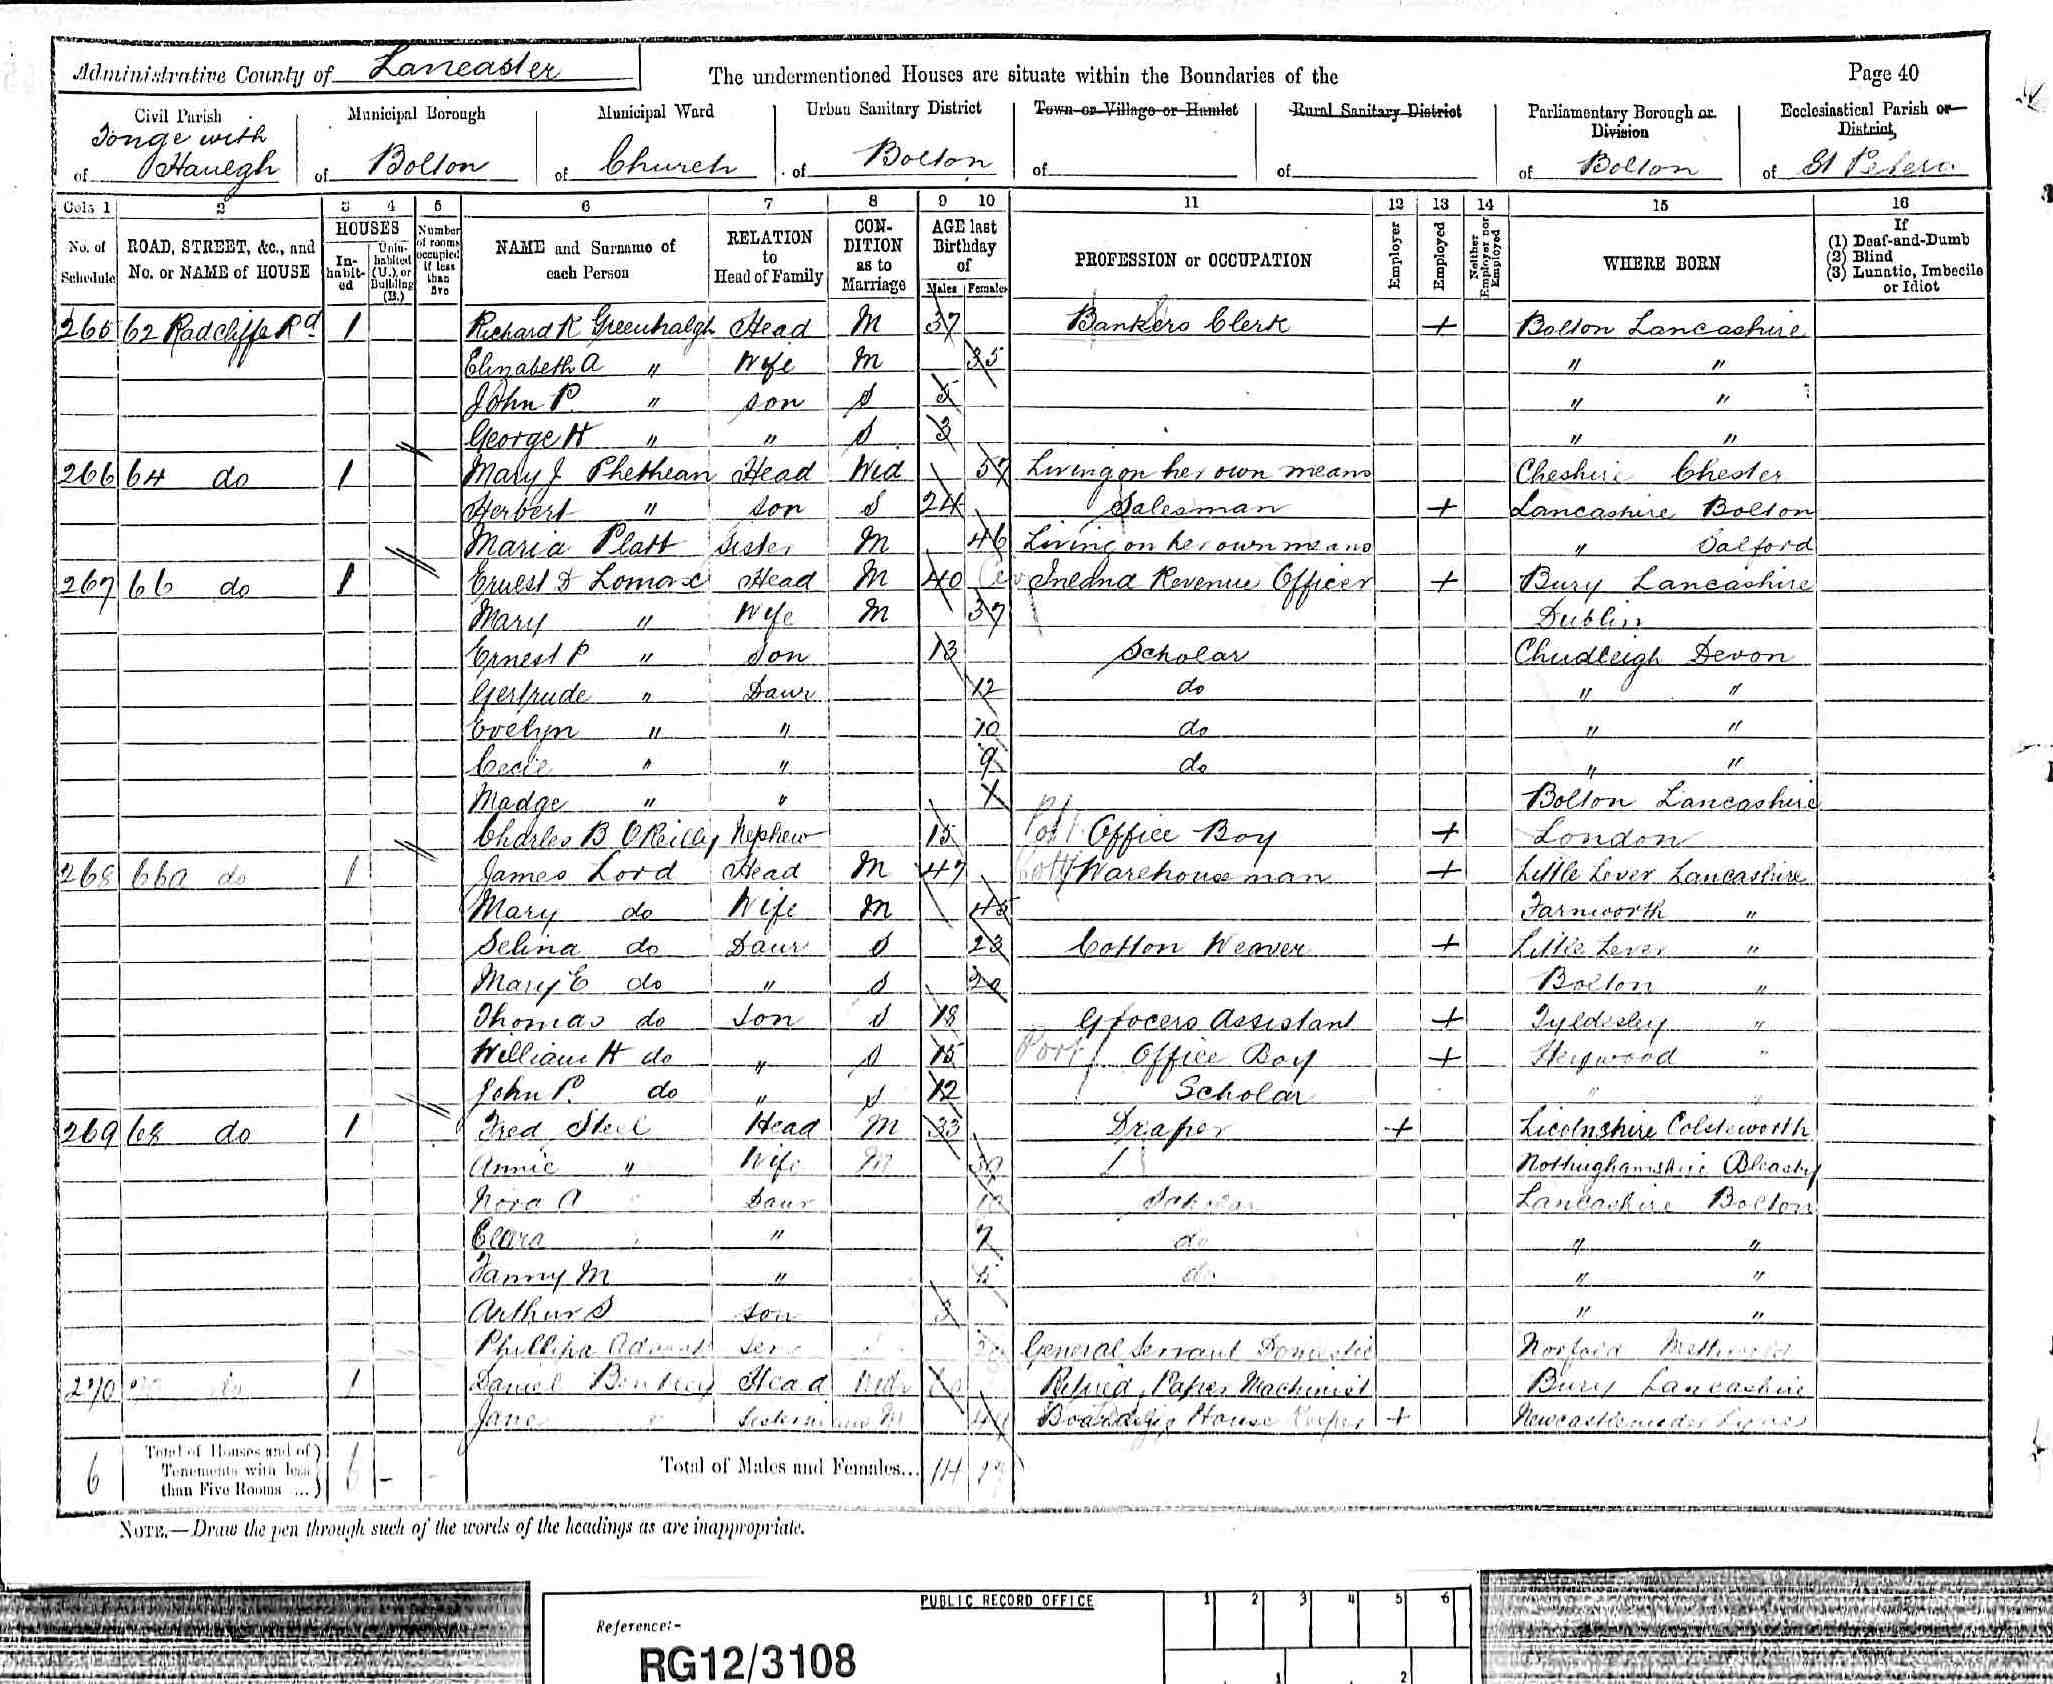 Administrative County of Lancaster The undermentioned Houses are situate within the Boundaries of the Page 40
Civil Parish Municipal Borough Municipal Ward Urban Sanitary District Town or Village or Hamlet Rural Sanitary District Parliamentary Borough or Division Ecclesiastical Parish or District,
of Tonge with Haulgh of Bolton of Church of Bolton of of of Bolton of St Peters
Cols 1 2 3 4 5 6 7 8 9 10 11 12 13 14 15 16
No. of Schedule ROAD, STREET, &c., and No. or NAME of HOUSE HOUSES Inhabited Uninhabited (U.), or Building (B.) Number of rooms occupied if less than five NAME and Surname of each Person RELATION to Head of Family CONDITION as to Marriage AGE last Birthday of Males Females PROFESSION or OCCUPATION Employer Employed Neither Employer nor Employed WHERE BORN If (1) Deaf-and-Dumb (2) Blind (3) Lunatic, Imbecile or Idiot
265 62 Radcliffe Rd 1 Richard K Greenhalgh Head M 37 Bankers Clerk + Bolton Lancashire
Elizabeth A " Wife M 35 " "
John P. " son S 5 " "
George H " " S 3 " "
266 64 do 1 Mary J Phethean Head Wid 57 Living on her own means Cheshire Chester
Herbert " son S 24 Salesman + Lancashire Bolton
Maria Platt Sister M 46 Living on her own means " Salford
267 66 do 1 Ernest D Lomax Head M 40 Inland Revenue Officer + Bury Lancashire
Mary " Wife M 37 Dublin
Ernest P " Son 13 Scholar Chudleigh Devon
Gertrude " Daur 12 do " "
Evelyn " " 10 do " "
Cecil " " 9 do " "
Madge " " 1 Bolton Lancashire
Charles B OReilly Nephew 15 Office Boy + London
268 66a do 1 James Lord Head M 47 Warehouseman + Little Lever Lancashire
Mary do Wife M 45 Farnworth "
Selina do Daur S 23 Cotton Weaver + Little Lever "
Mary E do " S 20 Bolton "
Thomas do Son S 18 Grocers Assistant + Tyldesley "
William H do " S 15 Office Boy + Heywood "
John P. do " S 12 Scholar " "
269 68 do 1 Fred Steel Head M 33 Draper + Licolnshire Colsteworth
Annie " Wife M Nottinghamshire Bleasby
Nora A Daur 10 Scholar Lancashire Bolton
Clara " 7 do " "
Fanny M " do " "
Arthur S son 3 " "
Phillipa Serv General Servant Domestic
270 do 1 Daniel Bentley Head Retired Paper Machinist Bury Lancashire
Jane M Boarding House Keeper + Newcastle under Lyne
6 Total of Houses and of Tenements with less than Five Rooms ... 6 - - Total of Males and Females... 14
NOTE.—Draw the pen through such of the words of the headings as are inappropriate.
PUBLIC RECORD OFFICE 1 2 3 4 5 6
Reference:-
RG12/3108
1 2